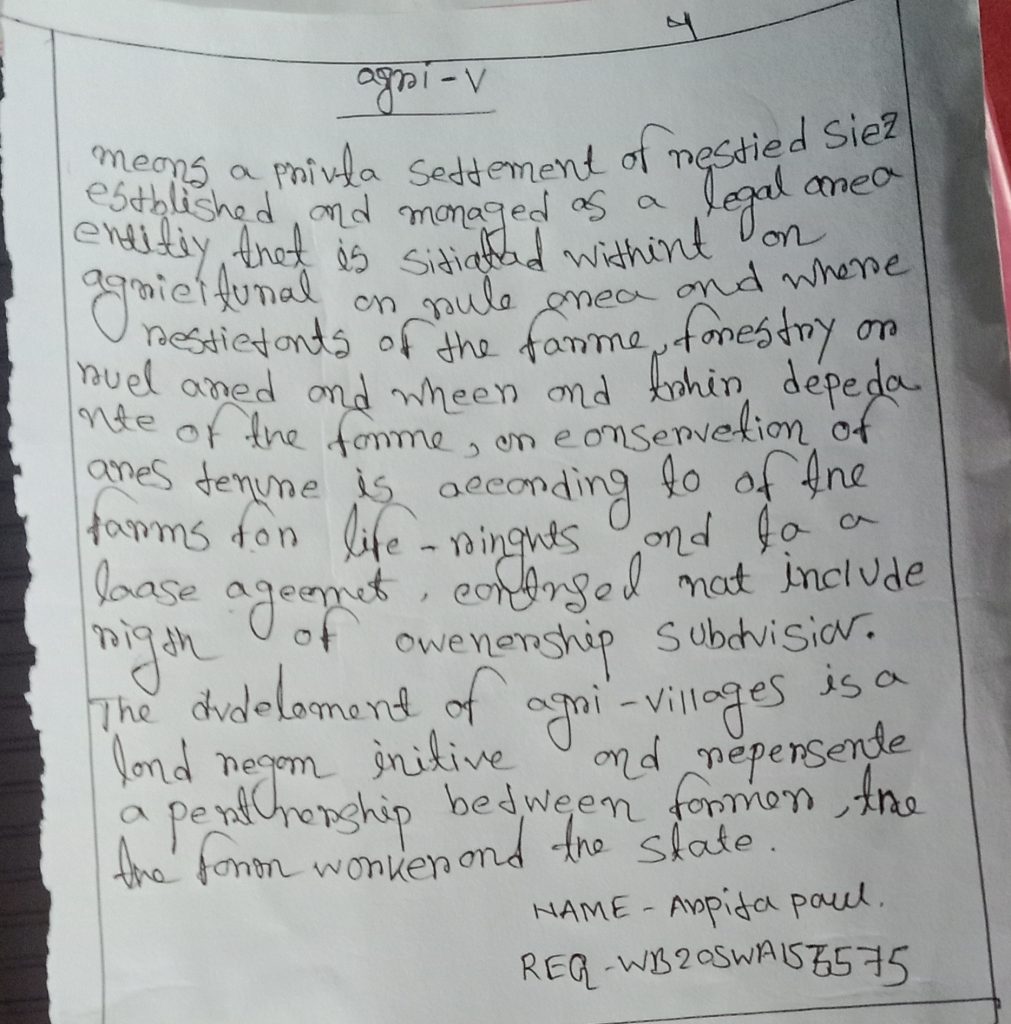 4
agri-v
means a privta settement of restied siez
estblished and managed as a legal area
entitiy thet is sitiattad withint on
agriciturial or rule area and where
restictonts of the farme, forestry or
ruel ared and wheen and trohin depeda
nte of the forme, or conservetion of
ares tenure is according to of the
farms for life - ringhts and ta a
laase ageemet, not include
rigth of owenership subdvision.
The dvdeloment of agri - villages is a
land regom initive and repersente
a pertthership between formor, the
the form worker and the state.
NAME - Arpita paul.
REG - WB20SWA155575